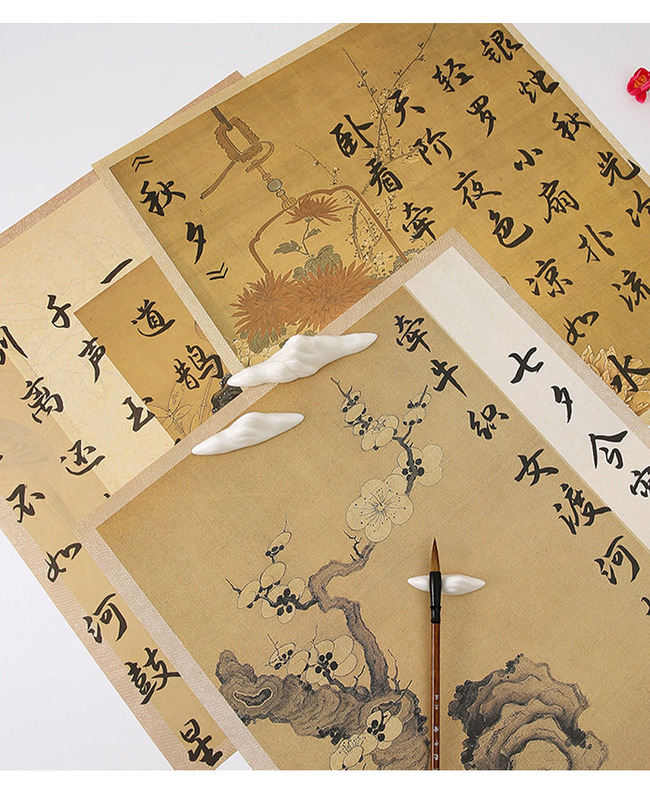 《秋夕》
银烛秋光冷
轻罗小扇扑流
天阶夜色凉如水
卧看牵
七夕今宵
牵牛织女渡河
一道鹊
子声玉
离还
不如河鼓星